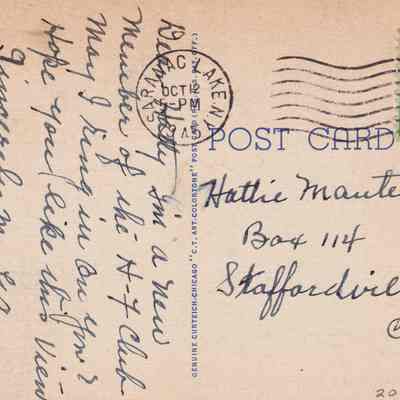 Dear Hatty I'm a new
Member of the H-7 Club
May I ring in on you?
Hope you like this View
Sincerely
SARANAC LAKE N.Y.
OCT 12
PM
POST CARD
Hattie Mante
Box 114
Staffordvil
GENUINE CURTEICH-CHICAGO "C.T. ART-COLORTONE" POST CARD (REG. U.S. PAT. OFF.)
20